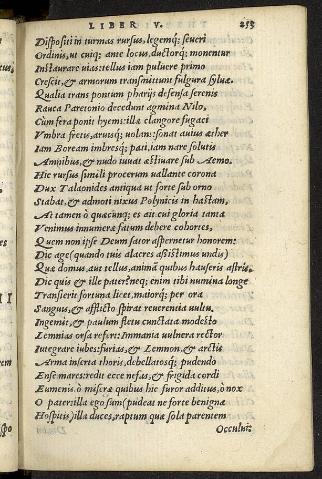 LIBER V. 253
Dispositi in turmas rursus, legemq; seueri
Ordinis, ut cuiq; ante locus, ductorq; monentur
Instaurare uias: tellus iam puluere primo
Crescit, & armorum transmittunt fulgura syluæ.
Qualia trans pontum pharijs defensa serenis
Rauca Paretonio decedunt agmina Nilo,
Cùm fera ponit hyems: illæ clangore fugaci
Vmbra fretis, aruisq; uolant: sonat auius æther
Iam Boream imbresq; pati, iam nare solutis
Amnibus, & nudo iuuat æstiuare sub Aemo.
Hic rursus simili procerum uallante corona
Dux Talaonides antiqua ut forte sub orno
Stabat, & admoti nixus Polynicis in hastam,
At tamen ô quæcunq; es ait cui gloria tanta
Venimus innumeræ fatum debere cohortes,
Quem non ipse Deum sator aspernetur honorem:
Dic age (quando tuis alacres assistimus undis)
Quæ domus, aut tellus, animā quibus hauseris astris.
Dic quis & ille pater? neq; enim tibi numina longe
Transierit fortuna licet, maiorq; per ora
Sanguis, & afflicto spirat reuerentia uultu.
Ingemit, & paulum fletu cunctata modesto
Lemnias orsa refert: Immania uulnera rector
Integrare iubes: furias, & Lemnon, & arctis
Arma inserta thoris, debellatosq; pudendo
Ense mares: redit ecce nefas, & frigida cordi
Eumenis. ô miseræ quibus hic furor additus, ô nox
O pater: illa ego sum (pudeat ne forte benignæ
Hospitis) illa duces, raptum quæ sola parentem
Occului: